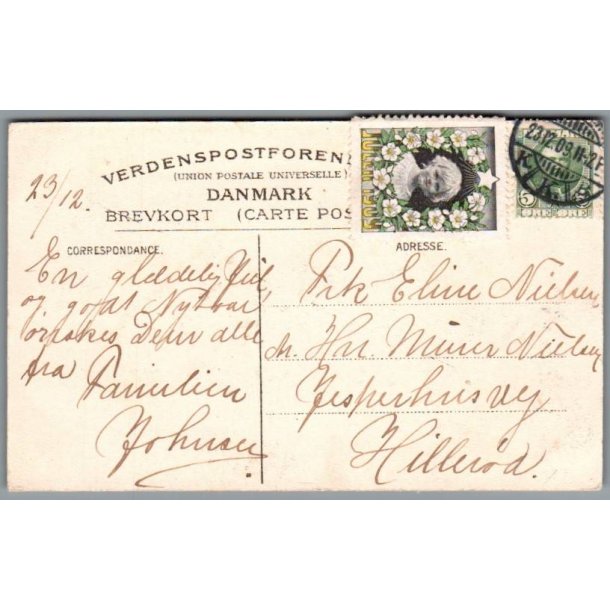 VERDENSPOSTFOREN
(UNION POSTALE UNIVERSELLE)
DANMARK
BREVKORT (CARTE POS
23/12.
CORRESPONDANCE.
En glædelig Jul
og godt Nytaar
ønskes Dem alle
fra Familien
Johnsen
JULEN
23.12.09.11-2
K
5 ØRE ØRE
ADRESSE.
Frk Eline Nielsen
A. Hr. Murer Nielsen
Jesperhusvej
Hillerød.